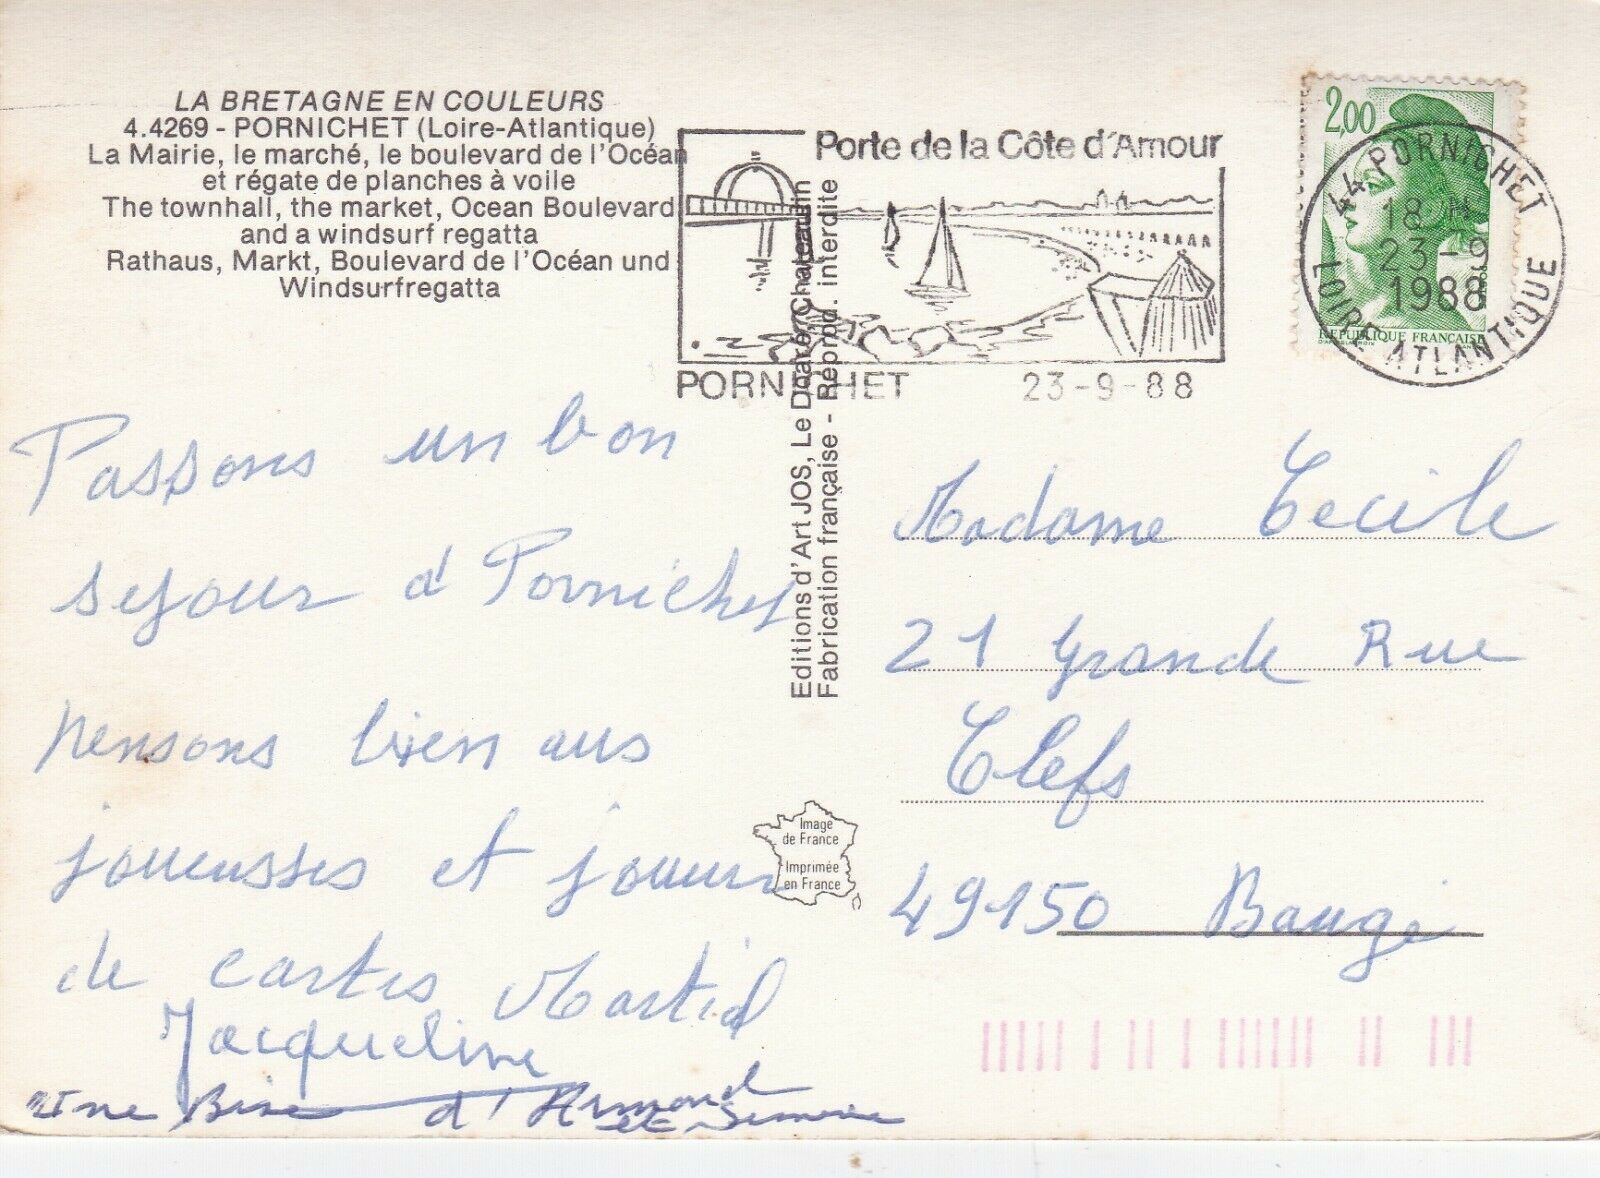 LA BRETAGNE EN COULEURS
4.4269 - PORNICHET (Loire-Atlantique)
La Mairie, le marché, le boulevard de l'Océan
et régate de planches à voile
The townhall, the market, Ocean Boulevard
and a windsurf regatta
Rathaus, Markt, Boulevard de l'Océan und
Windsurfregatta
Porte de la Côte d'Amour
PORNICHET 23-9-88
2,00
REPUBLIQUE FRANÇAISE
44 PORNICHET
18 H
23-9
1988
LOIRE ATLANTIQUE
Editions d'Art JOS, Le Doaré, Chateaulin
Fabrication française - Reprod. interdite
Passons un bon
sejour a Pornichet
pensons bien aus
joueusses et joueur
de cartes Martial
Jacqueline
une Bise d'Armand
et Simone
Madame Cecile
21 Grande Rue
Clefs
49150 Baugé
Image
de France
Imprimée
en France